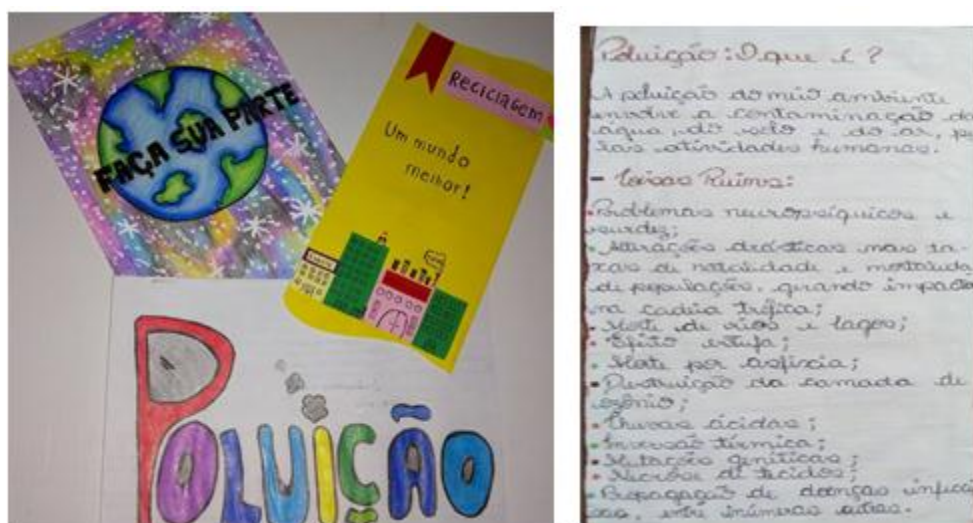 FAÇA SUA PARTE
Reciclagem
Um mundo
melhor!
POLUIÇÃO
Poluição: O que é?
A poluição do meio ambiente
envolve a contaminação da
água, do solo e do ar, pe
las atividades humanas.
- Coisas Ruins:
Problemas neuropsíquicos e
surdez;
Alterações drásticas nas ta-
xas de natalidade e mortalida
de populações, quando impacto
na cadeia trófica;
Morte de rios e lagos;
Efeito estufa;
Morte por asfixia;
Destruição da camada de
ozônio;
Chuvas ácidas;
Inversão térmica;
Mutações genéticas;
Necrose de tecidos;
Propagação de doenças infecci
sas, entre inúmeras outras.